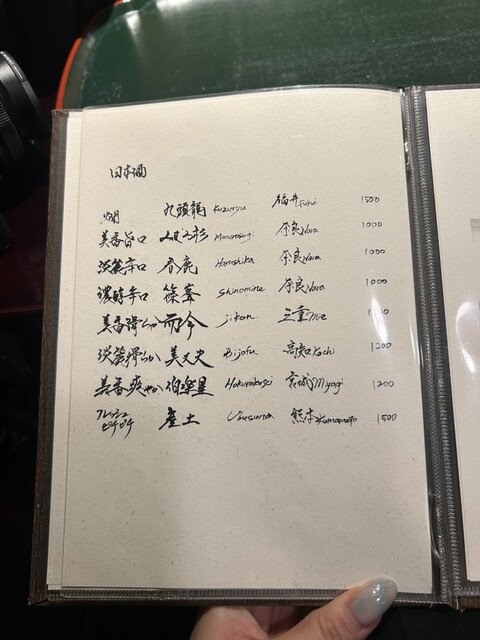 日本酒
燗 九頭龍 Kuzuryu 福井 Fukui 1500
美香旨口 みむろ杉 Mimurosugi 奈良 Nara 1000
淡麗辛口 春鹿 Harushika 奈良 Nara 1000
濃醇辛口 篠峯 Shinomine 奈良 Nara 1000
美香滑らか 而今 jikon 三重 Mie
淡麗滑らか 美丈夫 Bijofu 高知 Kochi 1200
美香爽やか 伯楽星 Hakurakusei 宮城 Miyagi 1200
フレッシュ ピチピチ 産土 Ubusuna 熊本 Kumamoto 1500